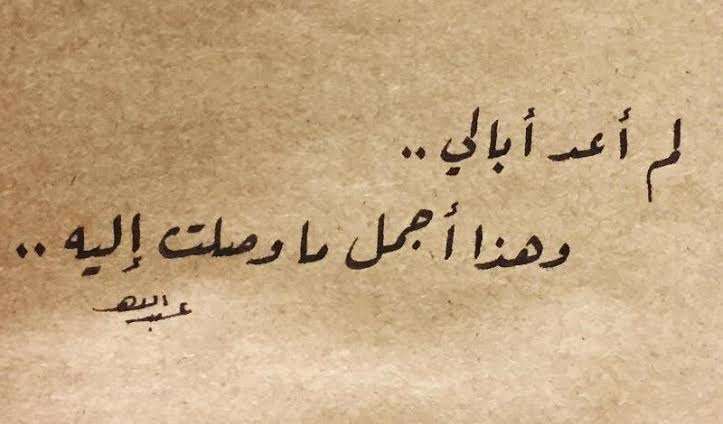 لم أعد أبالي ..
وهذا أجمل ما وصلت إليه ..
عبدالله